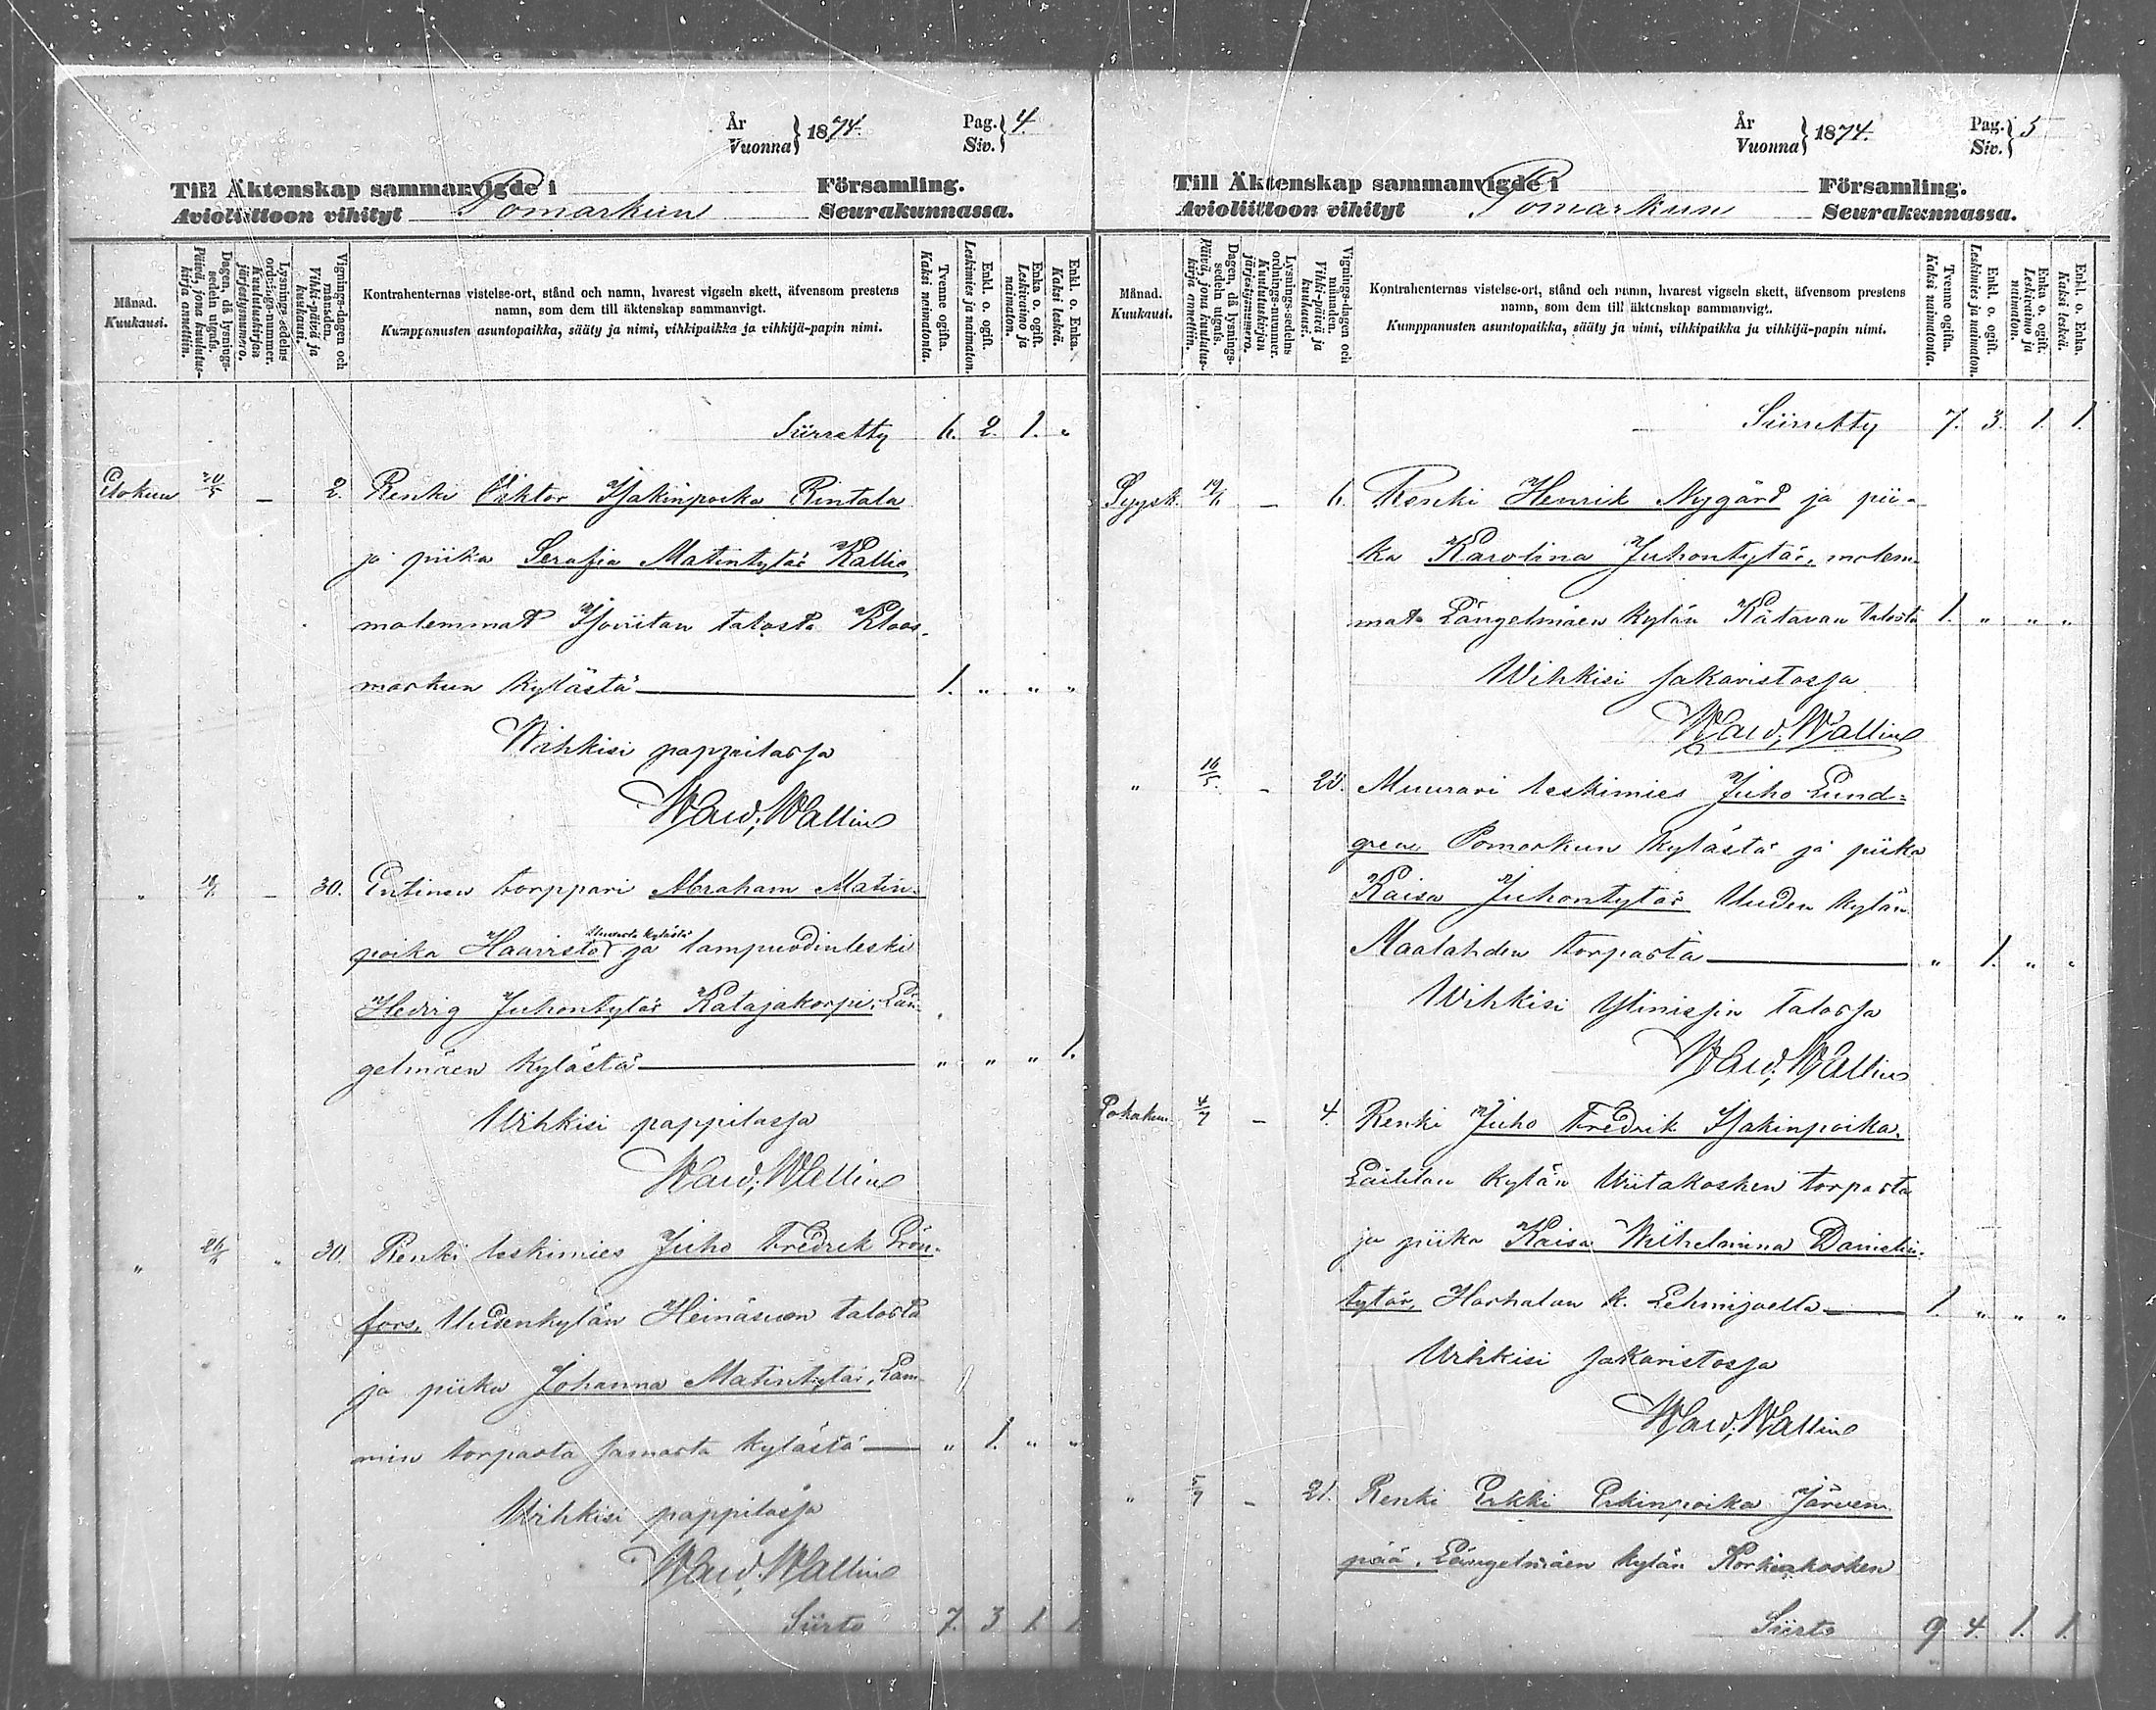 År Vuonna } 1874. Pag. Siv. } 4
Till Äktenskap sammanvigde i Församling.
Avioliittoon vihityt Pomarkun Seurakunnassa.
Månad. Kuukausi.
Dagen, då lysnings-sedeln utgafs. Päivä, jona kuulutus-kirja annettiin.
Lysnings-sedelns ordnings-nummer. Kuulutuskirjan järjestysnumero.
Vignings-dagen och månaden. Vihki-päivä ja kuukausi.
Kontrahenternas vistelse-ort, stånd och namn, hvarest vigseln skett, äfvensom prestens
namn, som dem till äktenskap sammanvigt.
Kumppanusten asuntopaikka, sääty ja nimi, vihkipaikka ja vihkijä-papin nimi.
Tvenne ogifta. Kaksi naimatonta.
Enkl. o. ogift. Leskimies ja naimaton.
Enka o. ogift. Leskivaimo ja naimaton.
Enkl. o. Enka. Kaksi leskeä.
Siirretty 6. 2. 1. "
Elokuu 20/5 – 2. Renki Viktor Isakinpoika Rintala
ja piika Serafia Matintytär Kallio
molemmat Isoviitan talosta Kloos-
markun kylästä 1. " " "
Wihkisi pappilassa
Wald. Wallin
" – 30. Entinen torppari Abraham Matin-
poika Haaristo ja lampuodinleski
Hedvig Juhontytär Katajakorpi, Län-
gelmäen kylästä " " " 1.
Wihkisi pappilassa
Wald. Wallin
" " 30. Renki leskimies Juho Fredrik Grön-
fors, Uudenkylän Heinäsuon talosta
ja piika Johanna Matintytär, Lam-
min torpasta samasta kylästä " 1. " "
Wihkisi pappilassa
Wald. Wallin
Siirto 7. 3 1. 1
År Vuonna } 1874. Pag. Siv. } 5
Till Äktenskap sammanvigde i Församling.
Avioliittoon vihityt Pomarkun Seurakunnassa.
Månad. Kuukausi.
Dagen, då lysnings-sedeln utgafs. Päivä, jona kuulutus-kirja annettiin.
Lysnings-sedelns ordnings-nummer. Kuulutuskirjan järjestysnumero.
Vignings-dagen och månaden. Vihki-päivä ja kuukausi.
Kontrahenternas vistelse-ort, stånd och namn, hvarest vigseln skett, äfvensom prestens
namn, som dem till äktenskap sammanvigt.
Kumppanusten asuntopaikka, sääty ja nimi, vihkipaikka ja vihkijä-papin nimi.
Tvenne ogifta. Kaksi naimatonta.
Enkl. o. ogift. Leskimies ja naimaton.
Enka o. ogift. Leskivaimo ja naimaton.
Enkl. o. Enka. Kaksi leskeä.
Siirretty 7. 3. 1. 1.
Syysk. – 6. Renki Henrik Nygård ja pii-
ka Karolina Juhontytär, molem-
mat Längelmäen kylän Kätavan talosta 1. " " "
Wihkisi sakaristossa
Wald. Wallin
" 16/5. – Muurari leskimies Juho Lund=
gren Pomarkun kylästä ja piika
Kaisa Juhontytär Uuden kylän
Maalahden torpasta " 1. " "
Wihkisi Ylinissin talossa
Wald. Wallin
Lokakuu – 4. Renki Juho Fredrik Isakinpoika,
Laitilan kylän Wiitakosken torpasta
ja piika Kaisa Wilhelmina Danielin-
tytär, Harhalan k. Lehmijoelta 1. " " "
Wihkisi sakaristossa
Wald. Wallin
" – 21. Renki Erkki Erkinpoika Järven-
pää, Längelmäen kylän Korkiakosken
Siirto 9 4. 1. 1.